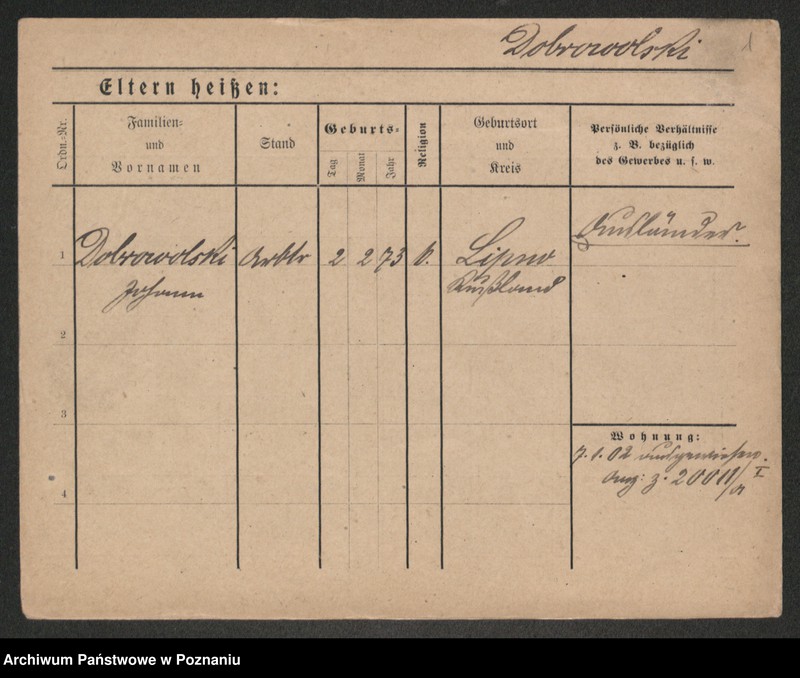 Dobrowolski
1
Eltern heißen:
Ordn.-Nr.
Familien-
und
Vornamen
Stand
Geburts-
Tag
Monat
Jahr
Religion
Geburtsort
und
Kreis
Persönliche Verhältnisse
z. B. bezüglich
des Gewerbes u. s. w.
1
Dobrowolski
Johann
Arbtr
2
2
73
k.
Lipno
Rußland
Ausländer.
2
3
4
Wohnung:
7.1.02 ausgewiesen.
Ang: Z. 20011/
I
Archiwum Państwowe w Poznaniu